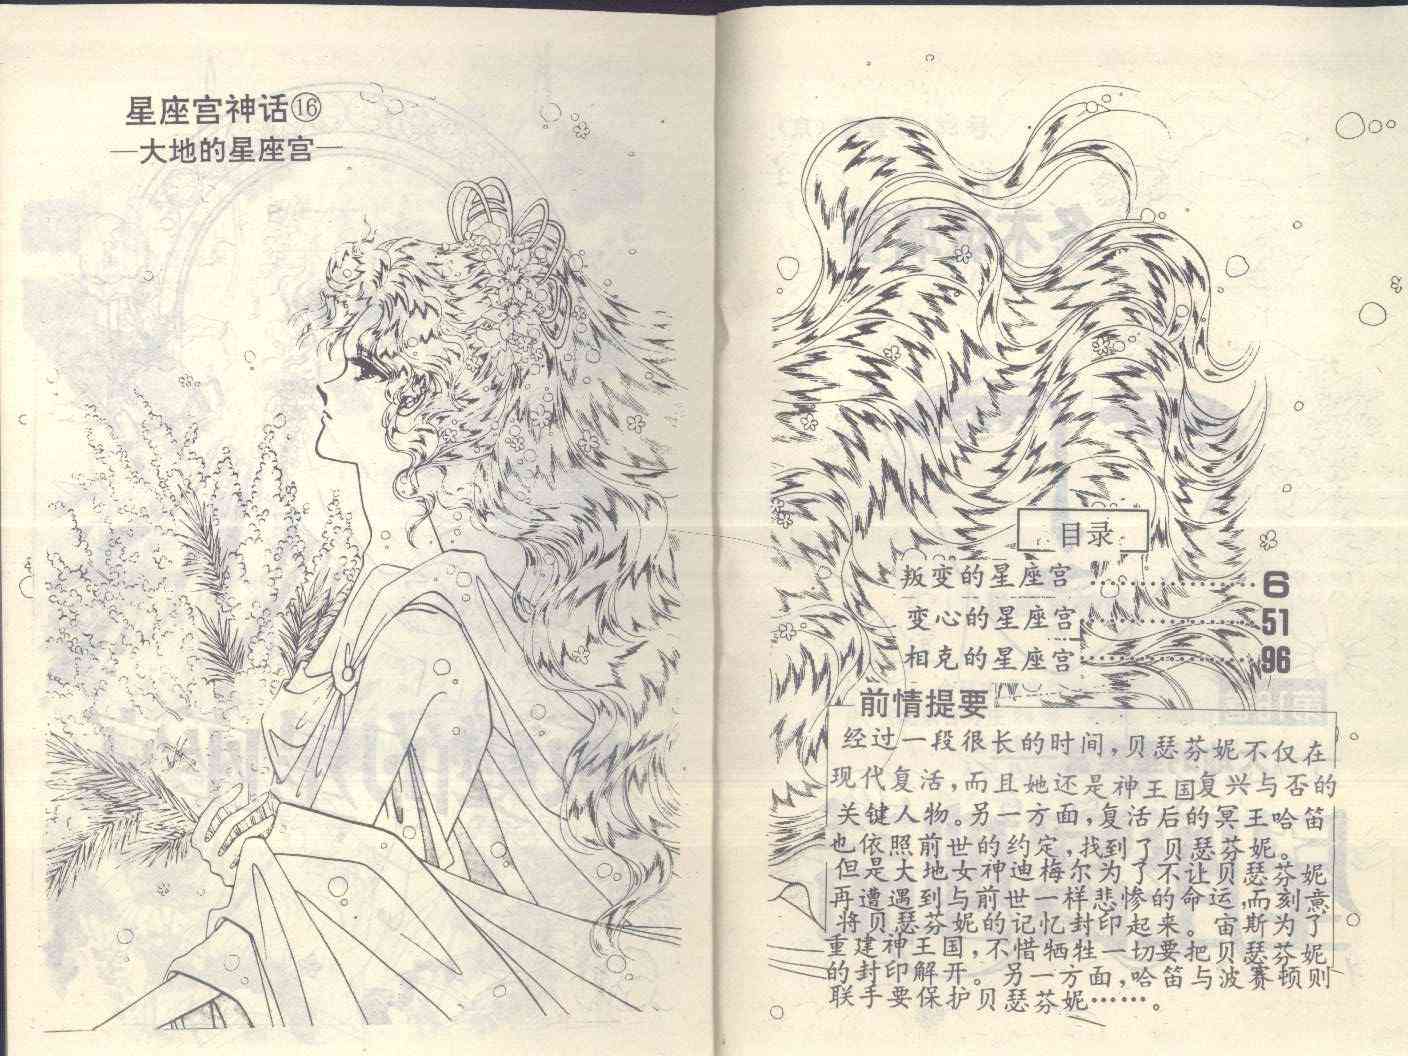 星座宫神话⑯
—大地的星座宫—
目录
叛变的星座宫……………6
变心的星座宫……………51
相克的星座宫……………96
前情提要
经过一段很长的时间，贝瑟芬妮不仅在
现代复活，而且她还是神王国复兴与否的
关键人物。另一方面，复活后的冥王哈笛
也依照前世的约定，找到了贝瑟芬妮。
但是大地女神迪梅尔为了不让贝瑟芬妮
再遭遇到与前世一样悲惨的命运，而刻意
将贝瑟芬妮的记忆封印起来。宙斯为了
重建神王国，不惜牺牲一切要把贝瑟芬妮
的封印解开。另一方面，哈笛与波赛顿则
联手要保护贝瑟芬妮……。